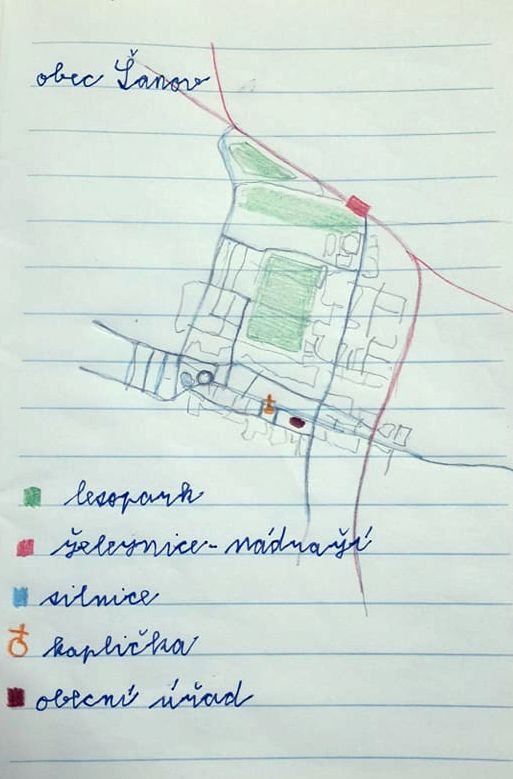 obec Šanov
lesopark
železnice - nádraží
silnice
kaplička
obecní úřad